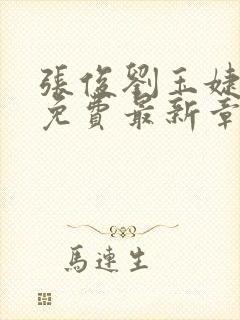 張俊劉玉婕
免費最新章
馬連生